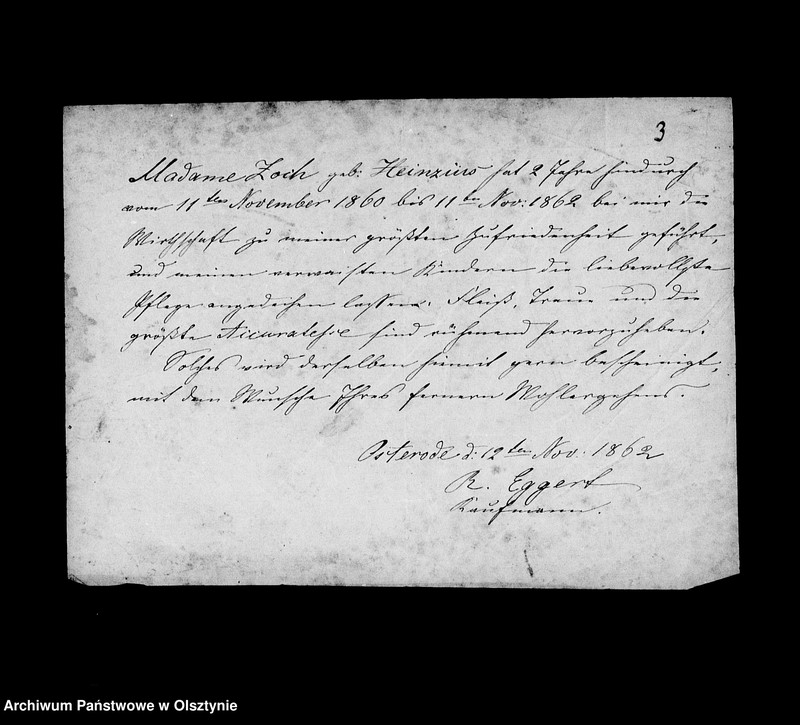 3
Madame Zoch geb: Heinzius hat 2 Jahre hindurch
vom 11ten November 1860 bis 11ten Nov: 1862 bei mir die
Wirthschaft zu meiner größten Zufriedenheit geführt,
und meinen verwaisten Kindern die liebevollste
Pflege angedeihen lassen. Fleiß, Treue und die
größte Accuratesse sind rühmend hervorzuheben.
Solches wird derselben hiemit gern bescheinigt,
mit dem Wunsche Ihres fernern Wohlergehens.
Osterode d: 12ten Nov. 1862
R. Eggert
Kaufmann.
Archiwum Państwowe w Olsztynie